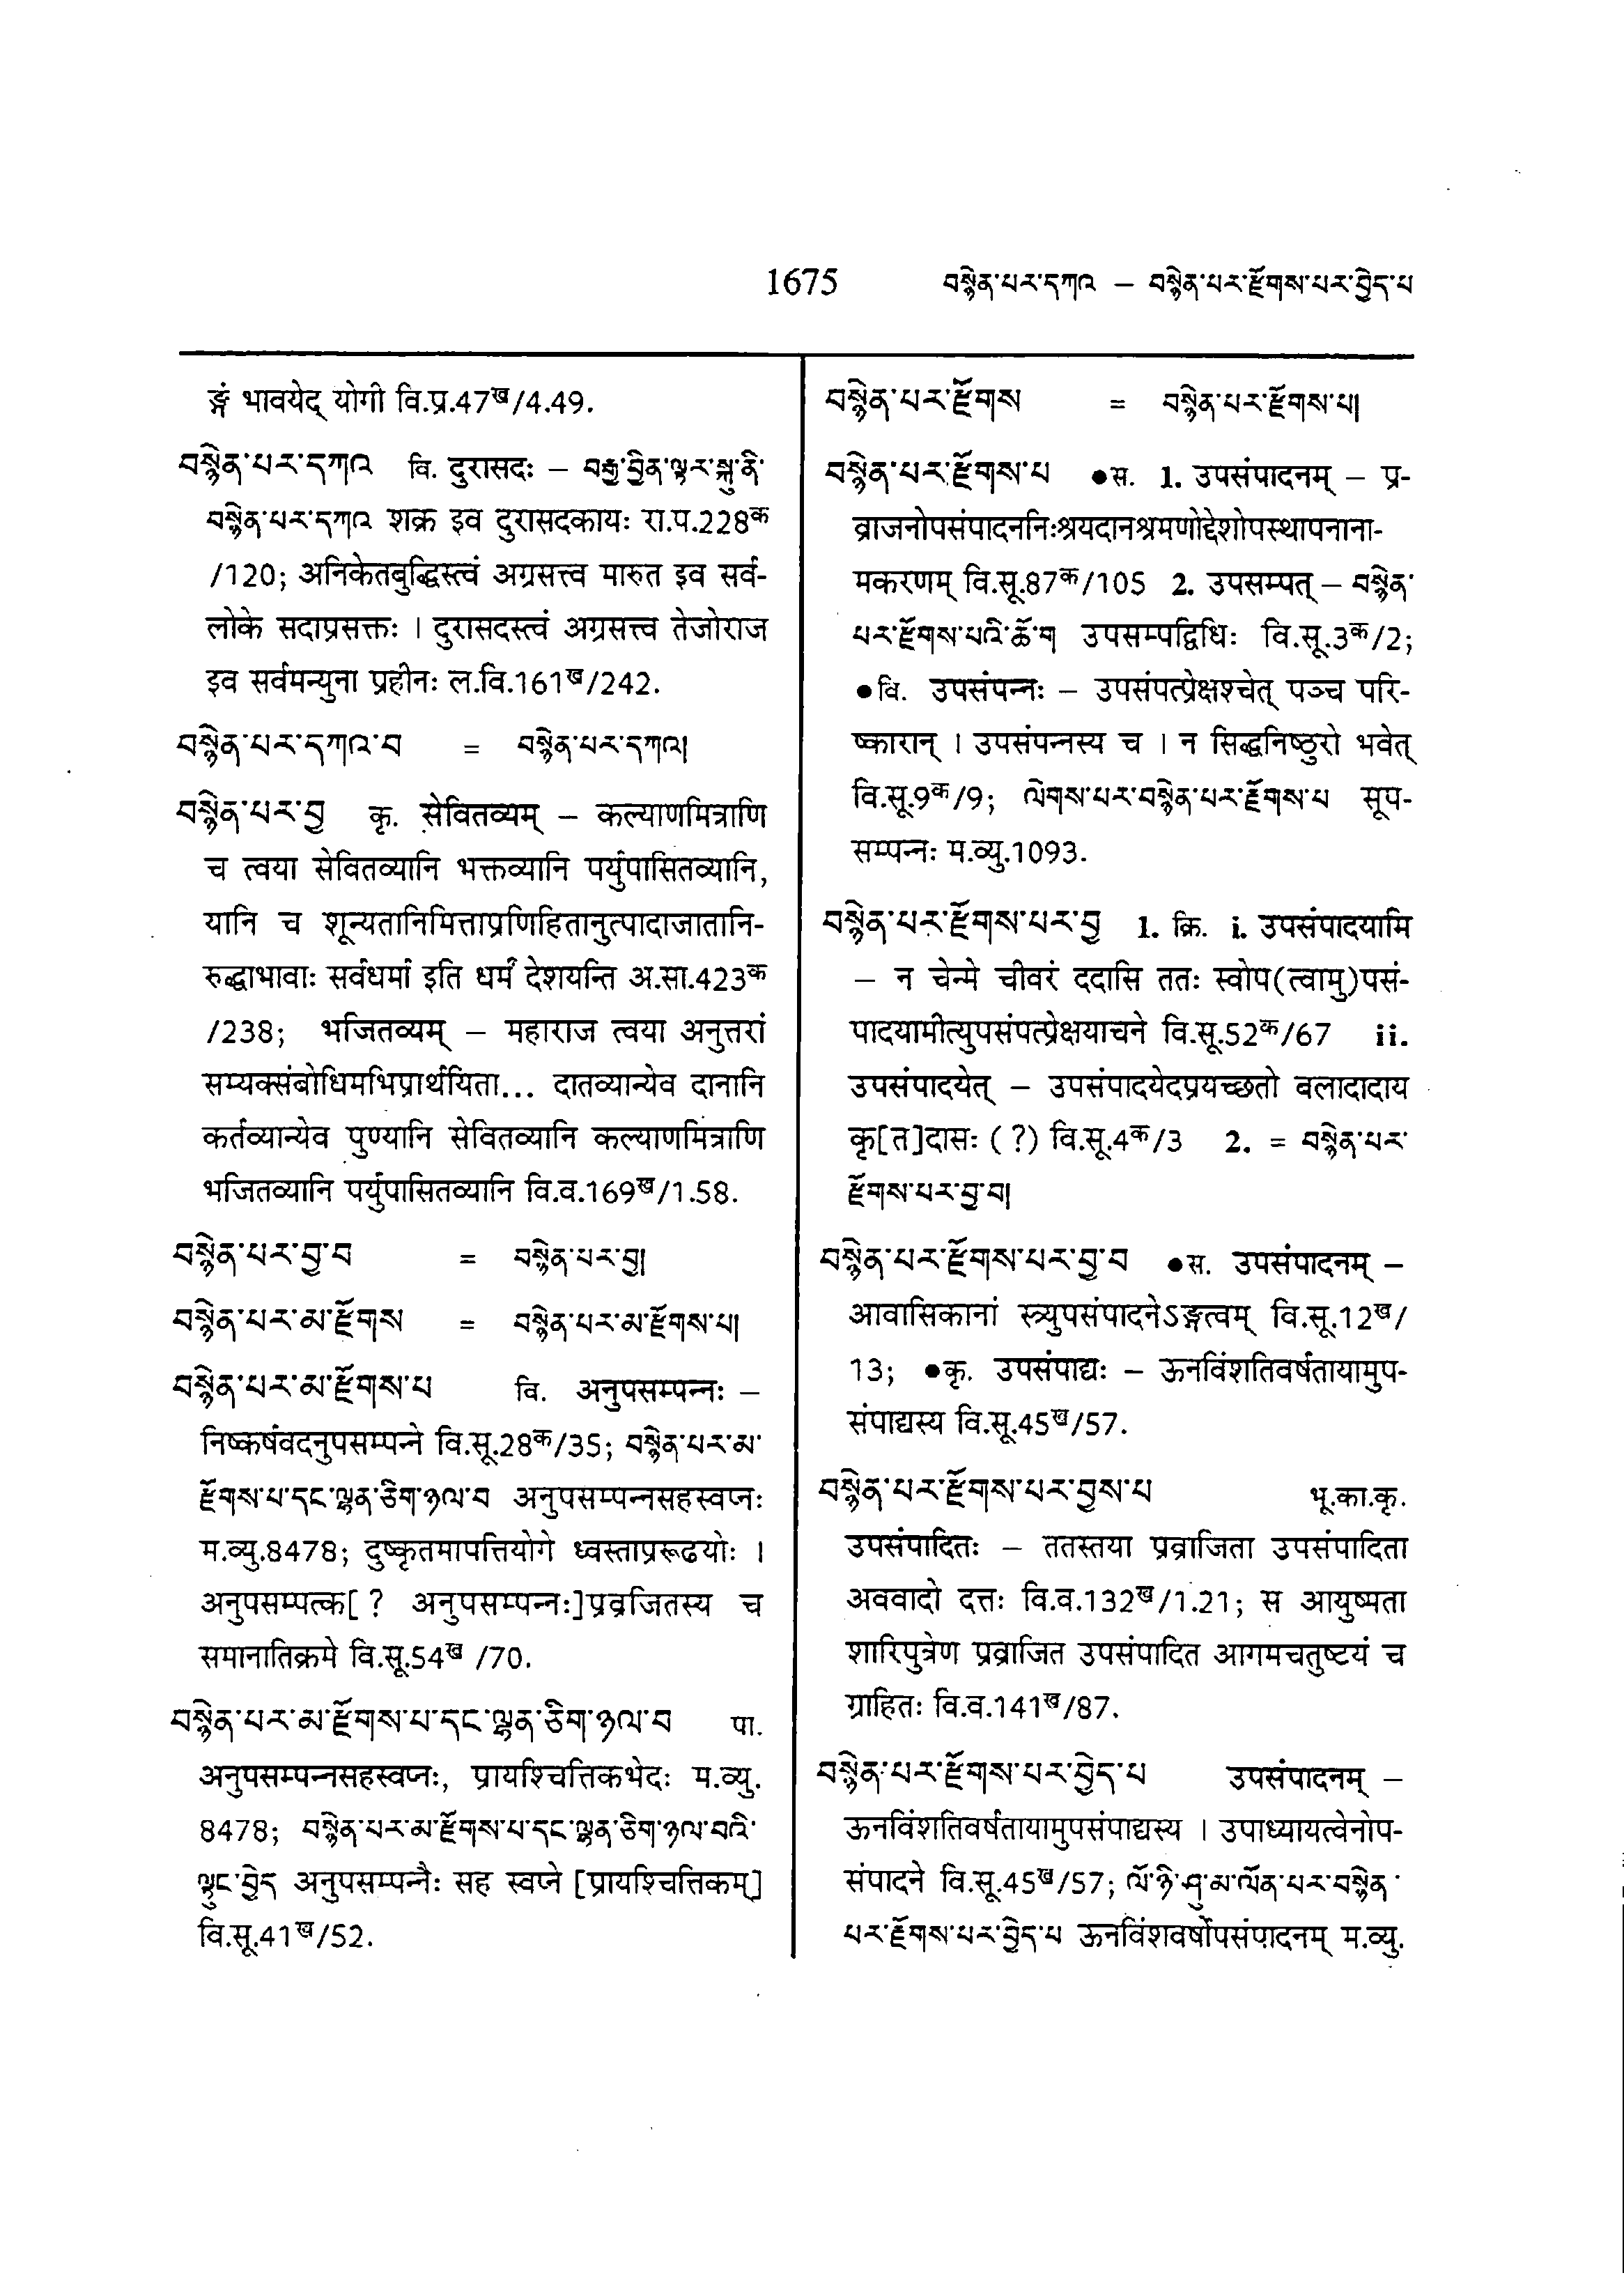 1675 བསྙེན་པར་དཀའ – བསྙེན་པར་རྫོགས་པར་བྱེད་པ
ङ्गं भावयेद् योगी वि.प्र.47ख/4.49.
བསྙེན་པར་དཀའ वि. दुरासदः – བརྒྱ་བྱིན་ལྟར་སྐུ་ནི་
བསྙེན་པར་དཀའ शक्र इव दुरासदकायः रा.प.228क
/120; अनिकेतबुद्धिस्त्वं अग्रसत्त्व मारुत इव सर्व-
लोके सदाप्रसक्तः । दुरासदस्त्वं अग्रसत्त्व तेजोराज
इव सर्वमन्युना प्रहीनः ल.वि.161ख/242.
བསྙེན་པར་དཀའ་བ = བསྙེན་པར་དཀའ།
བསྙེན་པར་བྱ कृ. सेवितव्यम् – कल्याणमित्राणि
च त्वया सेवितव्यानि भक्तव्यानि पर्युपासितव्यानि,
यानि च शून्यतानिमित्ताप्रणिहितानुत्पादाजातानि-
रुद्धाभावाः सर्वधर्मा इति धर्मं देशयन्ति अ.सा.423क
/238; भजितव्यम् – महाराज त्वया अनुत्तरां
सम्यक्संबोधिमभिप्रार्थयिता... दातव्यान्येव दानानि
कर्तव्यान्येव पुण्यानि सेवितव्यानि कल्याणमित्राणि
भजितव्यानि पर्युपासितव्यानि वि.व.169ख/1.58.
བསྙེན་པར་བྱ་བ = བསྙེན་པར་བྱ།
བསྙེན་པར་མ་རྫོགས = བསྙེན་པར་མ་རྫོགས་པ།
བསྙེན་པར་མ་རྫོགས་པ वि. अनुपसम्पन्नः –
निष्कर्षवदनुपसम्पन्ने वि.सू.28क/35; བསྙེན་པར་མ་
རྫོགས་པ་དང་ལྷན་ཅིག་ཉལ་བ अनुपसम्पन्नसहस्वप्नः
म.व्यु.8478; दुष्कृतमापत्तियोगे ध्वस्ताप्ररूढयोः ।
अनुपसम्पत्क[? अनुपसम्पन्नः]प्रव्रजितस्य च
समानातिक्रमे वि.सू.54ख /70.
བསྙེན་པར་མ་རྫོགས་པ་དང་ལྷན་ཅིག་ཉལ་བ पा.
अनुपसम्पन्नसहस्वप्नः, प्रायश्चित्तिकभेदः म.व्यु.
8478; བསྙེན་པར་མ་རྫོགས་པ་དང་ལྷན་ཅིག་ཉལ་བའི་
ལྟུང་བྱེད अनुपसम्पन्नैः सह स्वप्ने [प्रायश्चित्तिकम्]
वि.सू.41ख/52.
བསྙེན་པར་རྫོགས = བསྙེན་པར་རྫོགས་པ།
བསྙེན་པར་རྫོགས་པ ●स. 1. उपसंपादनम् – प्र-
व्राजनोपसंपादननिःश्रयदानश्रमणोद्देशोपस्थापनाना-
मकरणम् वि.सू.87क/105 2. उपसम्पत् – བསྙེན་
པར་རྫོགས་པའི་ཆོ་ག उपसम्पद्विधिः वि.सू.3क/2;
●वि. उपसंपन्नः – उपसंपत्प्रेक्षश्चेत् पञ्च परि-
ष्कारान् । उपसंपन्नस्य च । न सिद्धनिष्ठुरो भवेत्
वि.सू.9क/9; ལེགས་པར་བསྙེན་པར་རྫོགས་པ सूप-
सम्पन्नः म.व्यु.1093.
བསྙེན་པར་རྫོགས་པར་བྱ 1. क्रि. i. उपसंपादयामि
– न चेन्मे चीवरं ददासि ततः स्वोप(त्वामु)पसं-
पादयामीत्युपसंपत्प्रेक्षयाचने वि.सू.52क/67 ii.
उपसंपादयेत् – उपसंपादयेदप्रयच्छतो बलादादाय
कृ[त]दासः (?) वि.सू.4क/3 2. = བསྙེན་པར་
རྫོགས་པར་བྱ་བ།
བསྙེན་པར་རྫོགས་པར་བྱ་བ ●स. उपसंपादनम् –
आवासिकानां स्त्र्युपसंपादनेऽङ्गत्वम् वि.सू.12ख/
13; ●कृ. उपसंपाद्यः – ऊनविंशतिवर्षतायामुप-
संपाद्यस्य वि.सू.45ख/57.
བསྙེན་པར་རྫོགས་པར་བྱས་པ भू.का.कृ.
उपसंपादितः – ततस्तया प्रव्राजिता उपसंपादिता
अववादो दत्तः वि.व.132ख/1.21; स आयुष्मता
शारिपुत्रेण प्रव्राजित उपसंपादित आगमचतुष्टयं च
ग्राहितः वि.व.141ख/87.
བསྙེན་པར་རྫོགས་པར་བྱེད་པ उपसंपादनम् –
ऊनविंशतिवर्षतायामुपसंपाद्यस्य । उपाध्यायत्वेनोप-
संपादने वि.सू.45ख/57; ལོ་ཉི་ཤུ་མ་ལོན་པར་བསྙེན་
པར་རྫོགས་པར་བྱེད་པ ऊनविंशवर्षोपसंपादनम् म.व्यु.